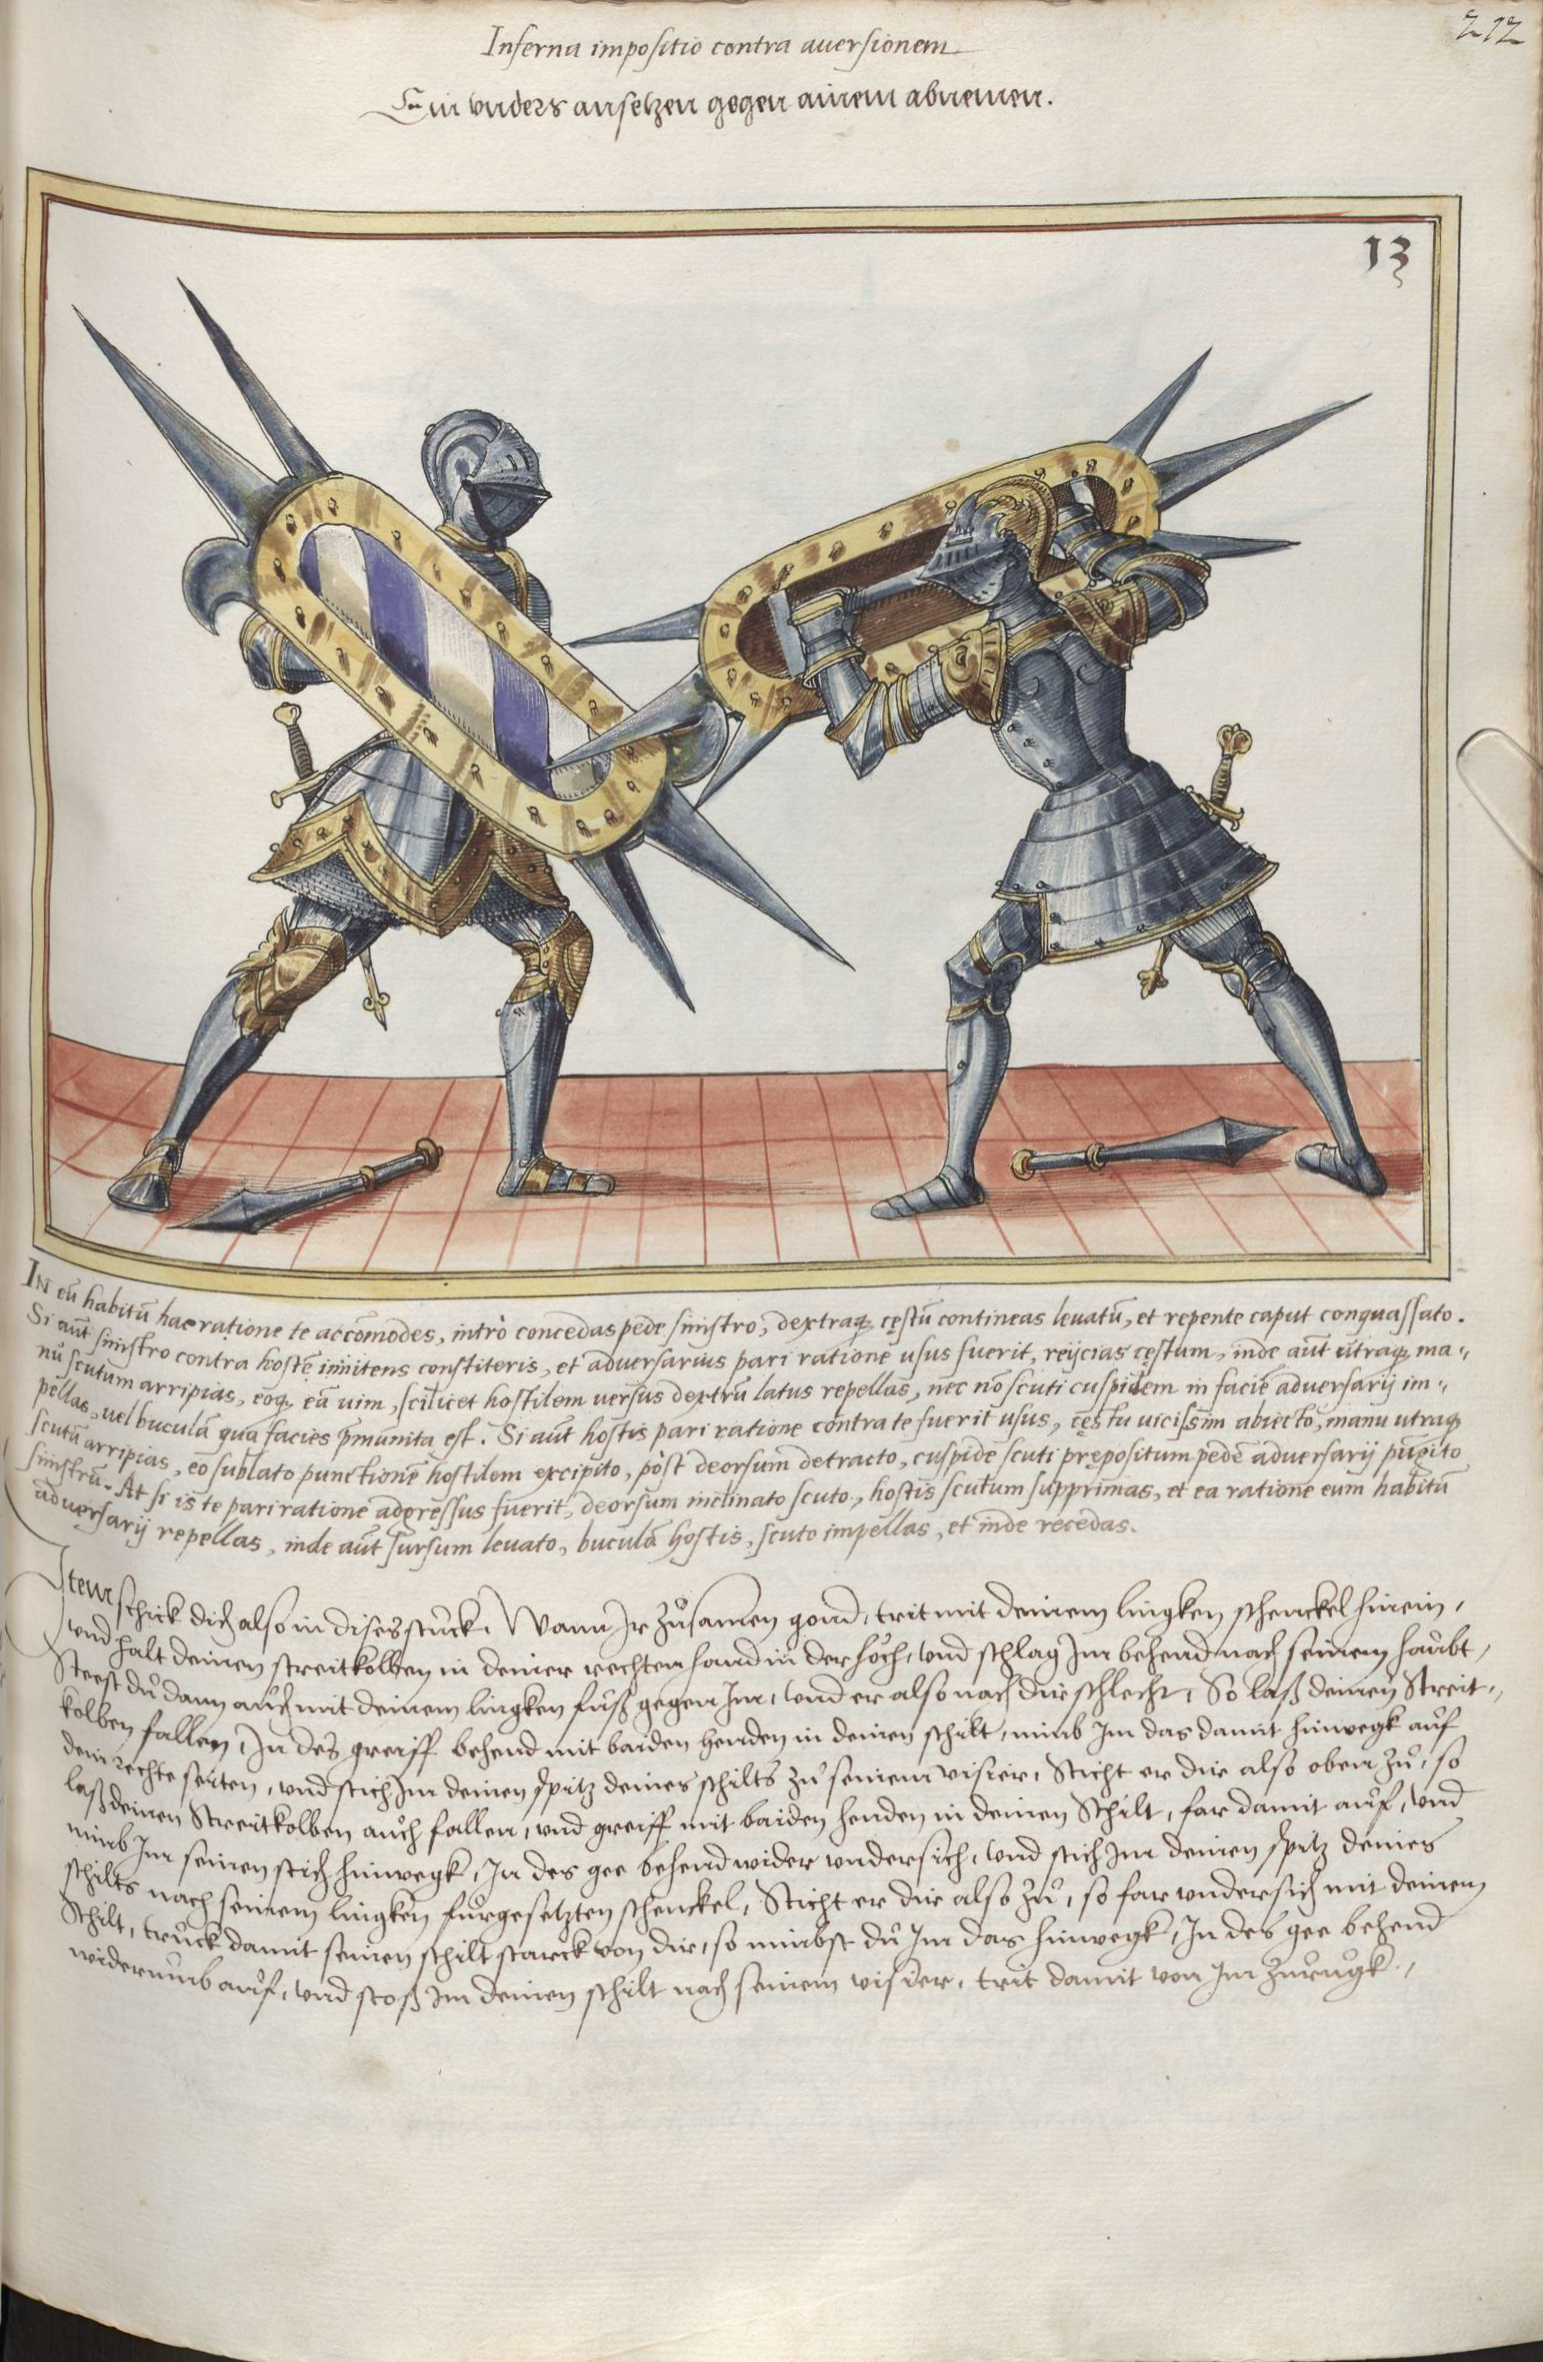 212
Inferna impositio contra auersionem
Ein vnders ansetzen gegen ainem abnemen.
13
IN eū habitū hac ratione te accōmodes, intrò concedas pede sinistro, dextraq; cęstū contineas leuatū, et repente caput conquassato.
Si aūt sinistro contra hostē innitens constiteris, et aduersarius pari ratione usus fuerit, reijcias cęstum, inde aūt utraq; ma„
nu scutum arripias, eoq; eā uim, scilicet hostilem uersus dextrū latus repellas, nec nō scuti cuspidem in faciē aduersarij im„
pellas, uel buculā qua facies p̄munita est. Si aūt hostis pari ratione contra te fuerit usus, cęstu uicissim abiecto, manu utraq;
scutū arripias, eo sublato punctionē hostilem excipito, pòst deorsum detracto, cuspide scuti prępositum pedē aduersarij pungito
sinistrū. At si is te pari ratione adgressus fuerit, deorsum inclinato scuto, hostis scutum supprimas, et ea ratione eum habitū
aduersarij repellas, inde aūt sursum leuato, buculā hostis, scuto impellas, et inde recedas.
Item schick dich also in dises stuck, Wann Ir zůsamen gond, trit mit deinem lingken schenckel hinein,
vnd halt deinen streitkolben in deiner rechten hand in der höch, vnd schlag Im behend nach seinem haůbt,
Steest dů dann aůch mit deinem lingken fůß gegen Im, vnd er also nach dir schlecht, So laß deinen Streit„
kolben fallen, In des greiff behend mit baiden henden in deinen schilt, nimb Im das damit hinwegk aůf
dein rechte seiten, vnd stich Im deinen spitz deines schilts zů seinem visier, Sticht er dir also oben zů, so
laß deinen Streitkolben aůch fallen, vnd greiff mit baiden henden in deinen Schilt, far damit aůf, vnd
nimb Im seinen stich hinwegk, In des gee behend wider vndersich, vnd stich Im deinen spitz deines
schilts nach seinem lingken fůrgesetzten schenckel, Sticht er dir also zů, so far vndersich mit deinem
Schilt, trůck damit seinen schilt starck von dir, so nimbst dů Im das hinwegk, In des gee behend
widerůmb aůf, vnd stoß Im deinen schilt nach seinem visier, trit damit von Im zůrůgk.